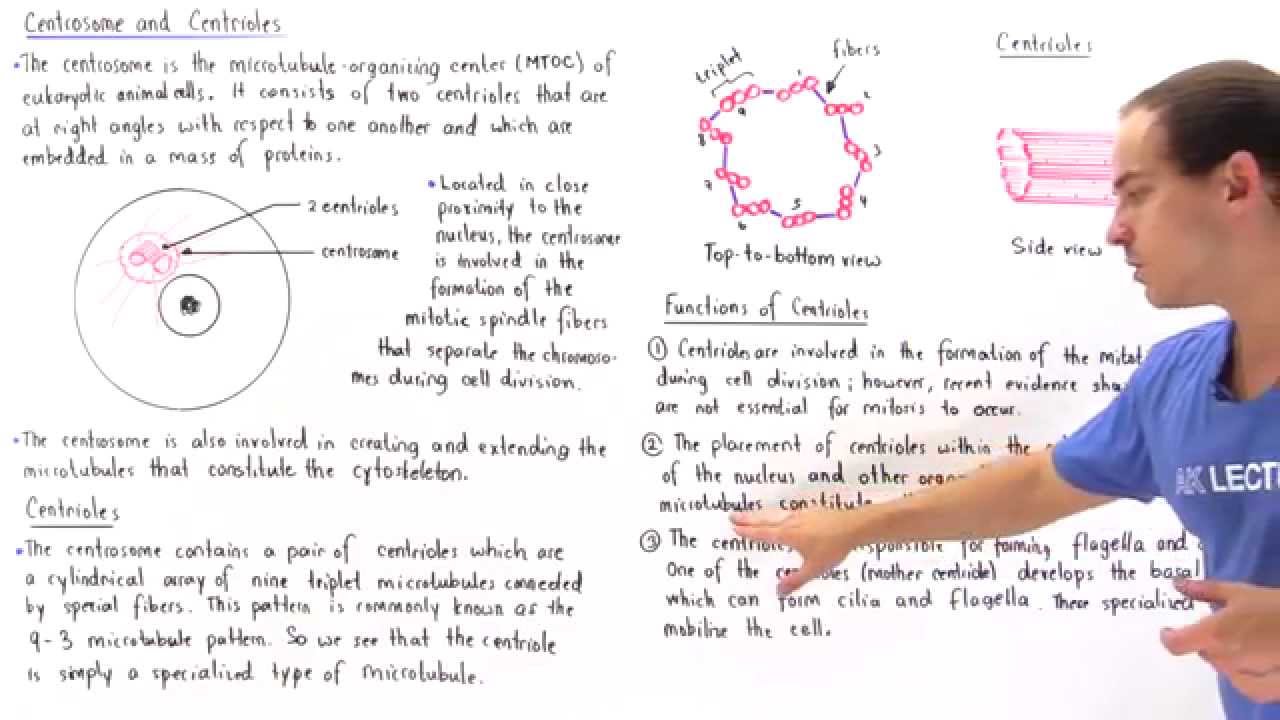 Centrosome and Centrioles
•The centrosome is the microtubule-organizing center (MTOC) of
eukaryotic animal cells. It consists of two centrioles that are
at right angles with respect to one another and which are
embedded in a mass of proteins.
2 centrioles
centrosome
•Located in close
proximity to the
nucleus, the centrosome
is involved in the
formation of the
mitotic spindle fibers
that separate the chromoso-
mes during cell division.
•The centrosome is also involved in creating and extending the
microtubules that constitute the cytosteleton.
Centrioles
•The centrosome contains a pair of centrioles which are
a cylindrical array of nine triplet microtubules connected
by special fibers. This pattern is commonly known as the
9-3 microtubule pattern. So we see that the centriole
is simply a specialized type of microtubule.
triplet
fibers
1
2
3
4
5
6
7
8
9
Top-to-bottom view
Centrioles
Side view
Functions of Centrioles
① Centrioles are involved in the formation of the
during cell division; however, recent evidence
are not essential for mitosis to occur.
② The placement of centrioles within the
of the nucleus and other
microtubules
③ The responsible for forming flagella and
One of the (mother centriole) develops the basal
which can form cilia and flagella. These specialized
mobilize the cell.
AK LECTU